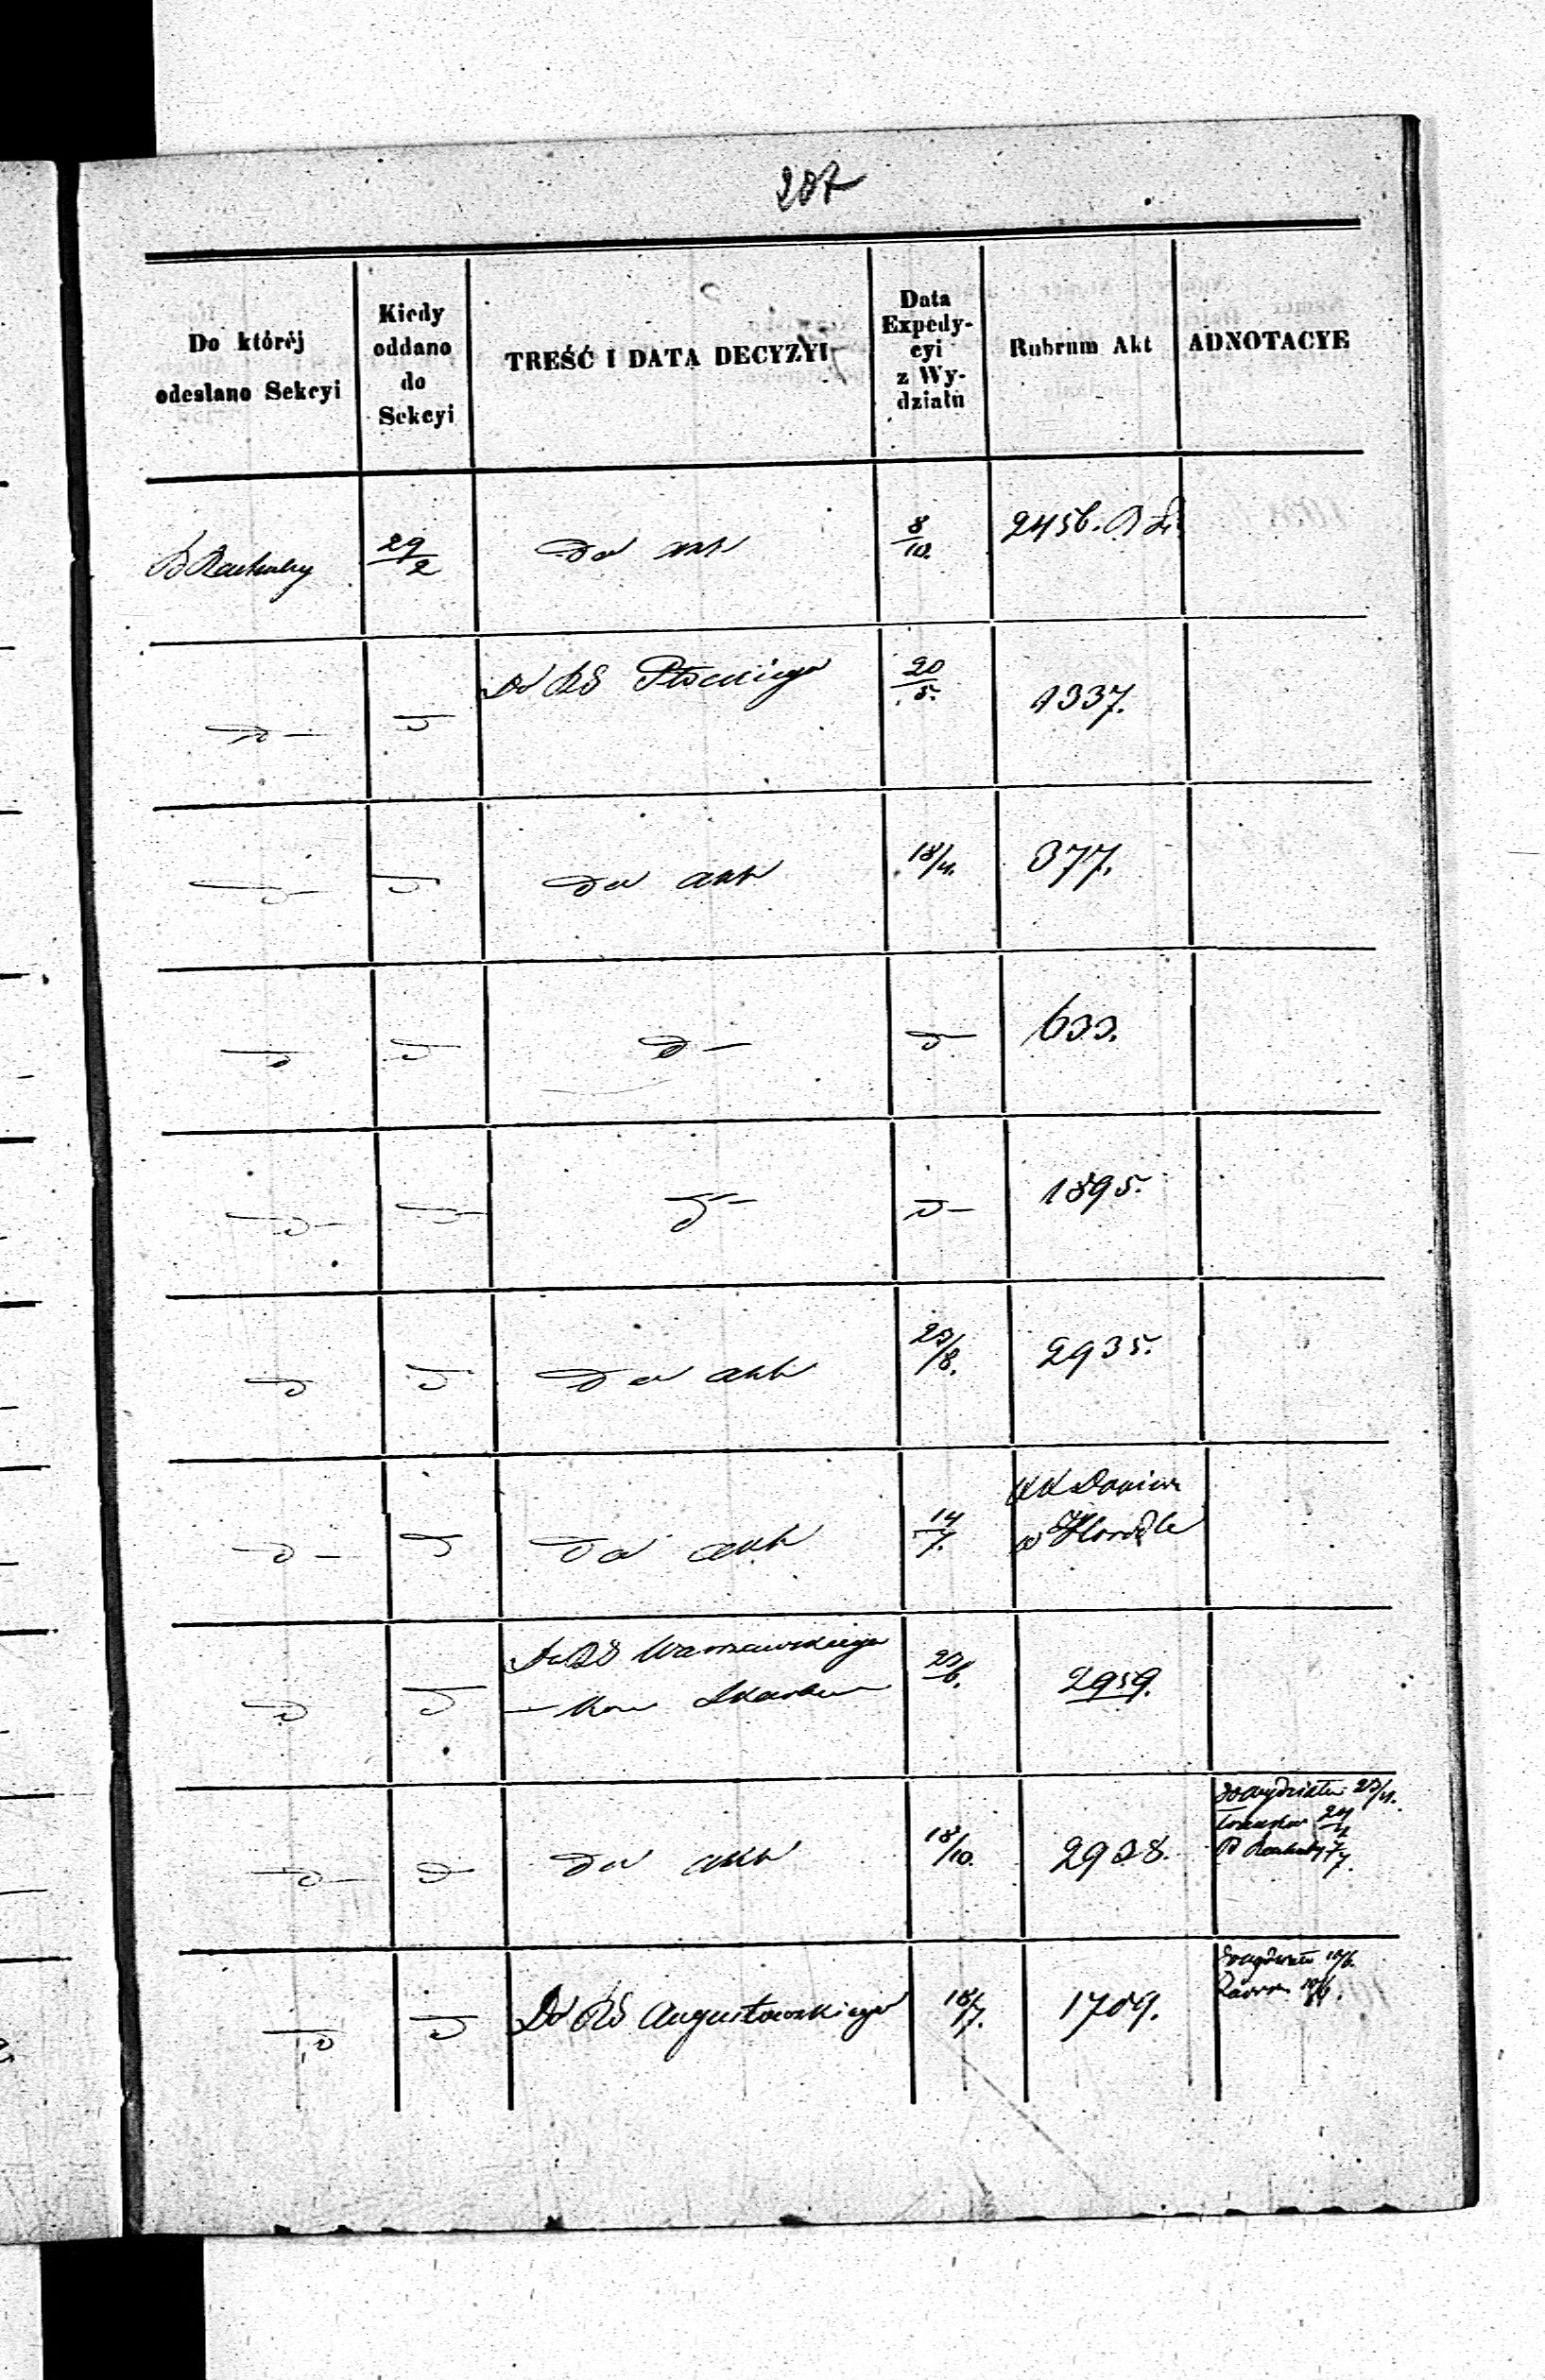 287
Do któréj odesłano Sekcyi
Kiedy oddano do Sekcyi
TREŚĆ I DATA DECYZYI
Data Expedycyi z Wydziału
Rubrum Akt
ADNOTACYE
B Rachuby 29/2 Do akt 8/10. 2456.
D – D Do RS Płockiego 20/5. 1337.
D – D Do akt 18/4. 377.
D D D – D 633.
D – D – D – D – 1895.
D D Do akt 23/8. 2935.
D – D Do akt 14/7. w Horodle
D D Do RS Warszawskiego 23/6. 2959.
D – D Do akt 18/10. 2938. do wydziału 23/4.
24/4
B Rachuby 7/7.
D D Do RS Augustowskiego 18/7. 1709. do wydziału 10/6.
10/6.